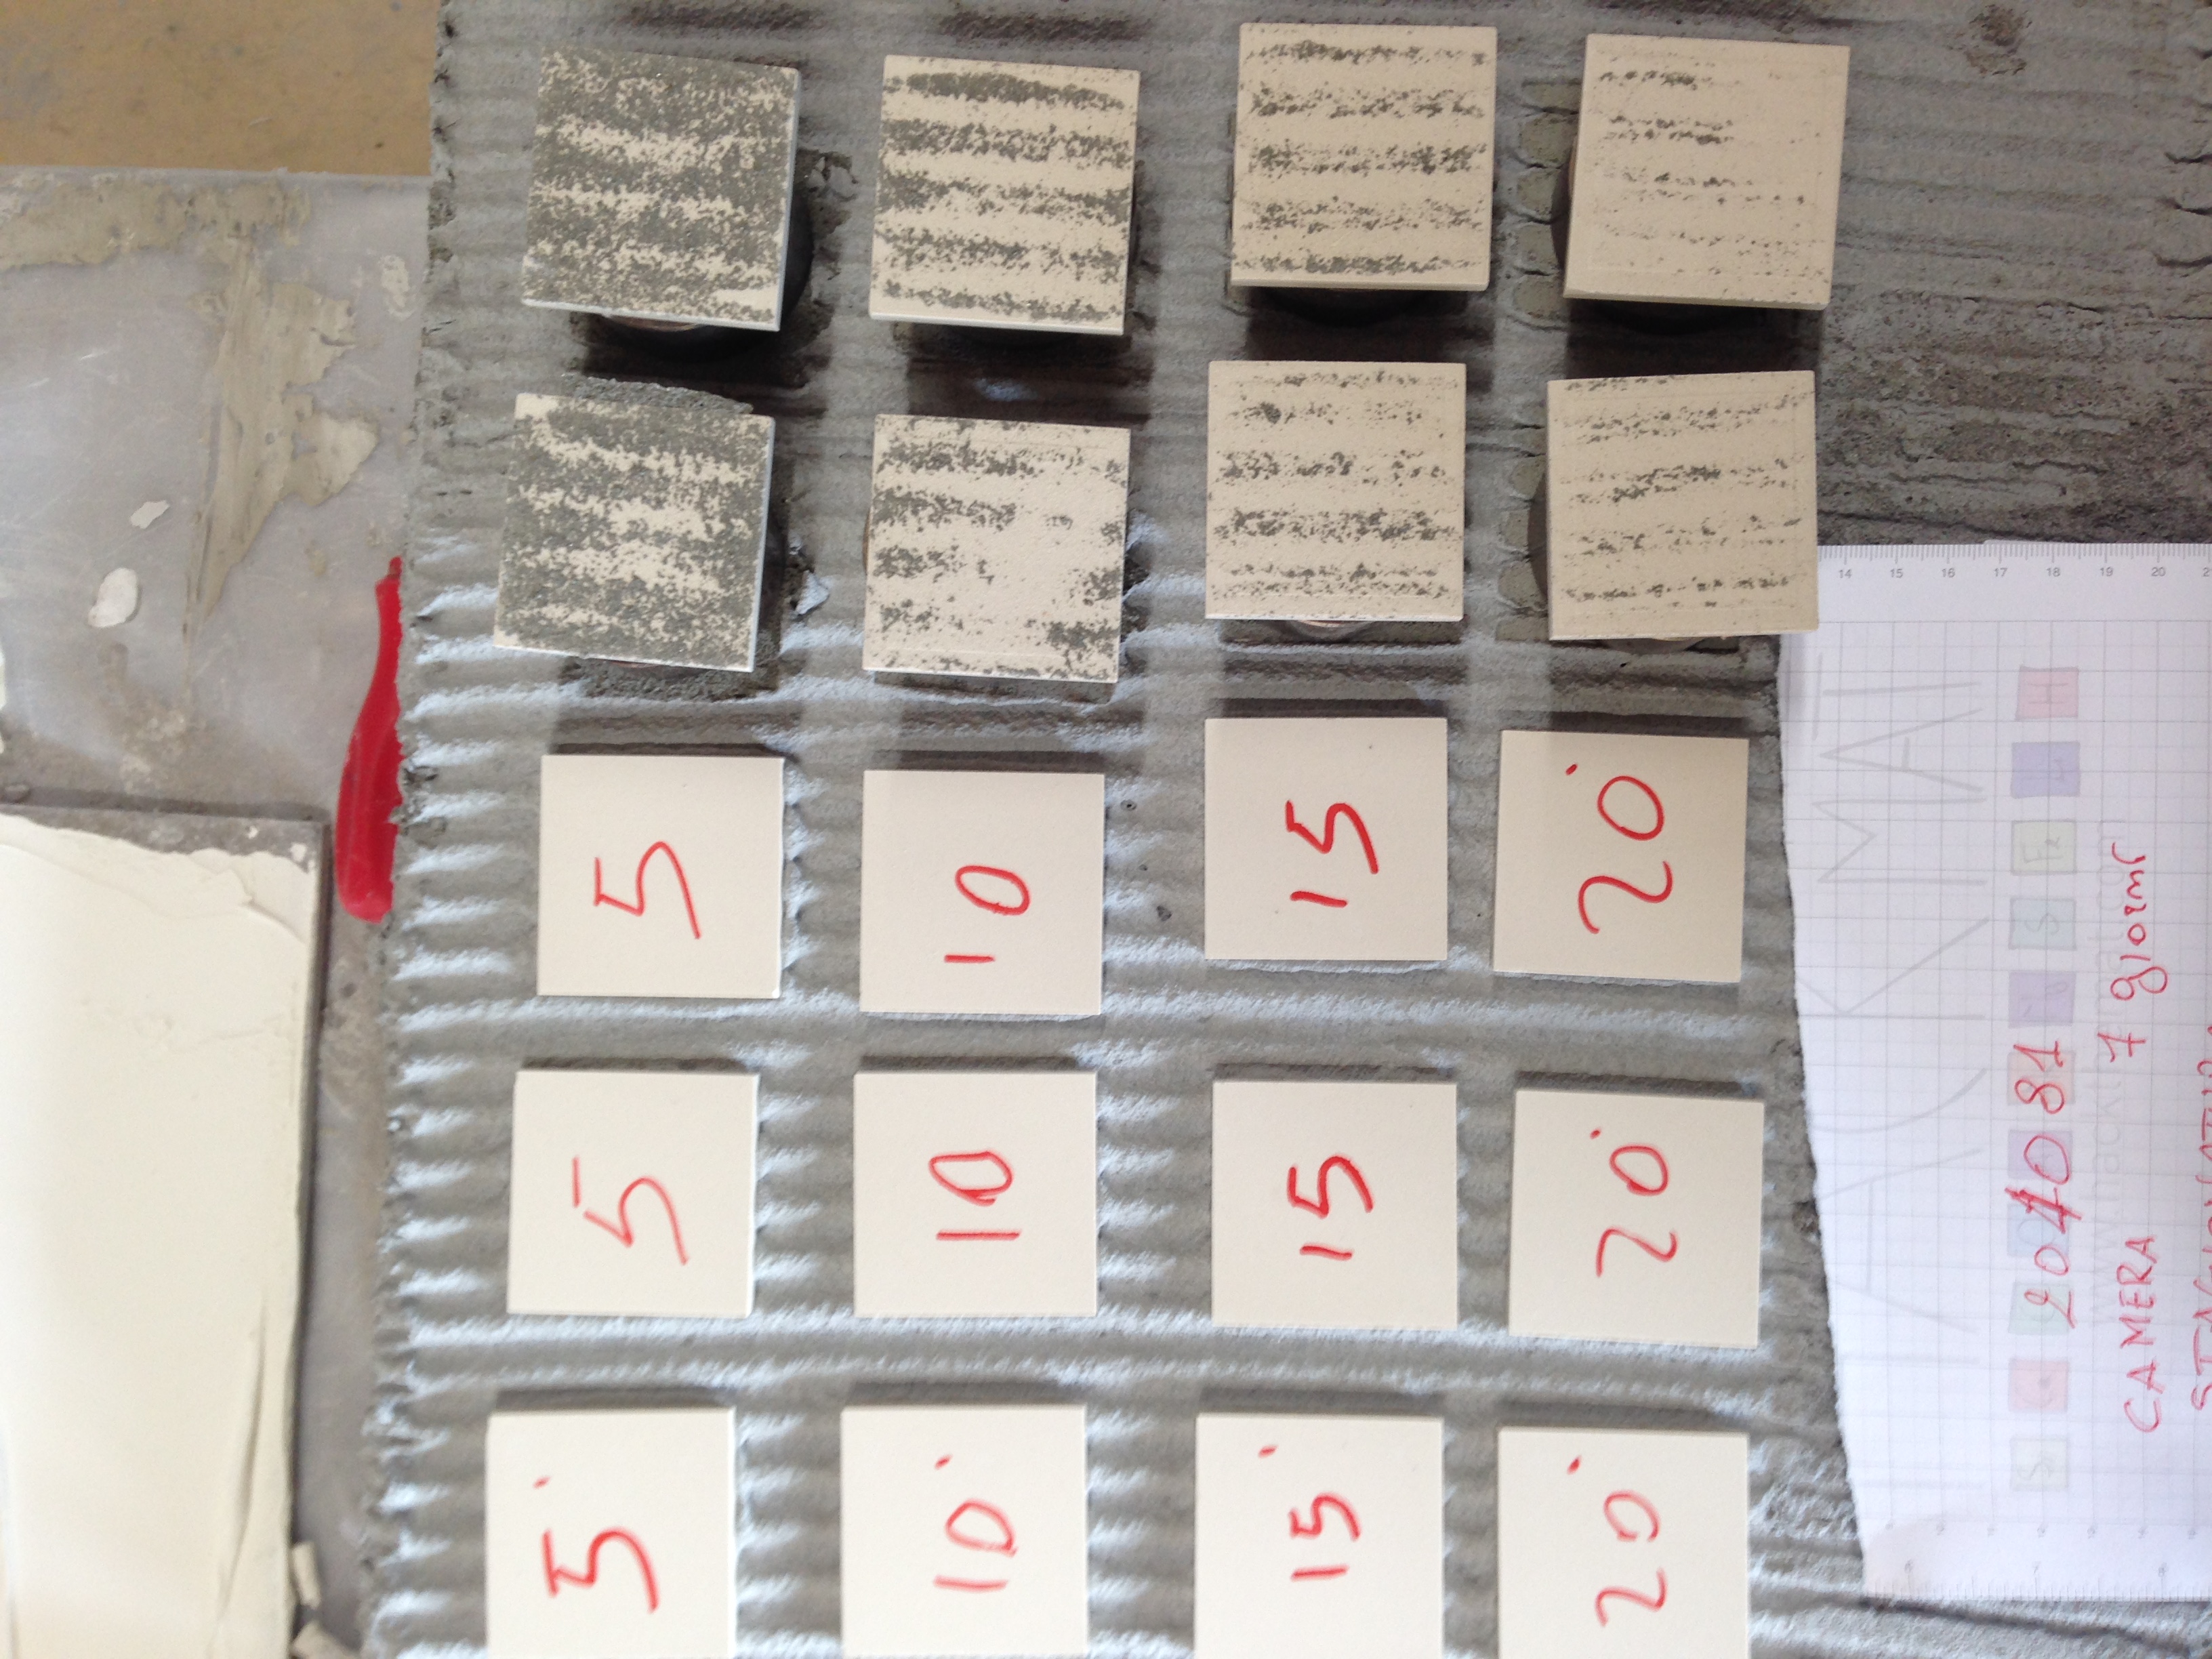 5' 5 5
10' 10 10
15' 15 15
20' 20' 20'
HACK MAT
14
15
16
17
18
19
20
S Fe H
201081
www.hackthemat.com
CAMERA 7 giorni